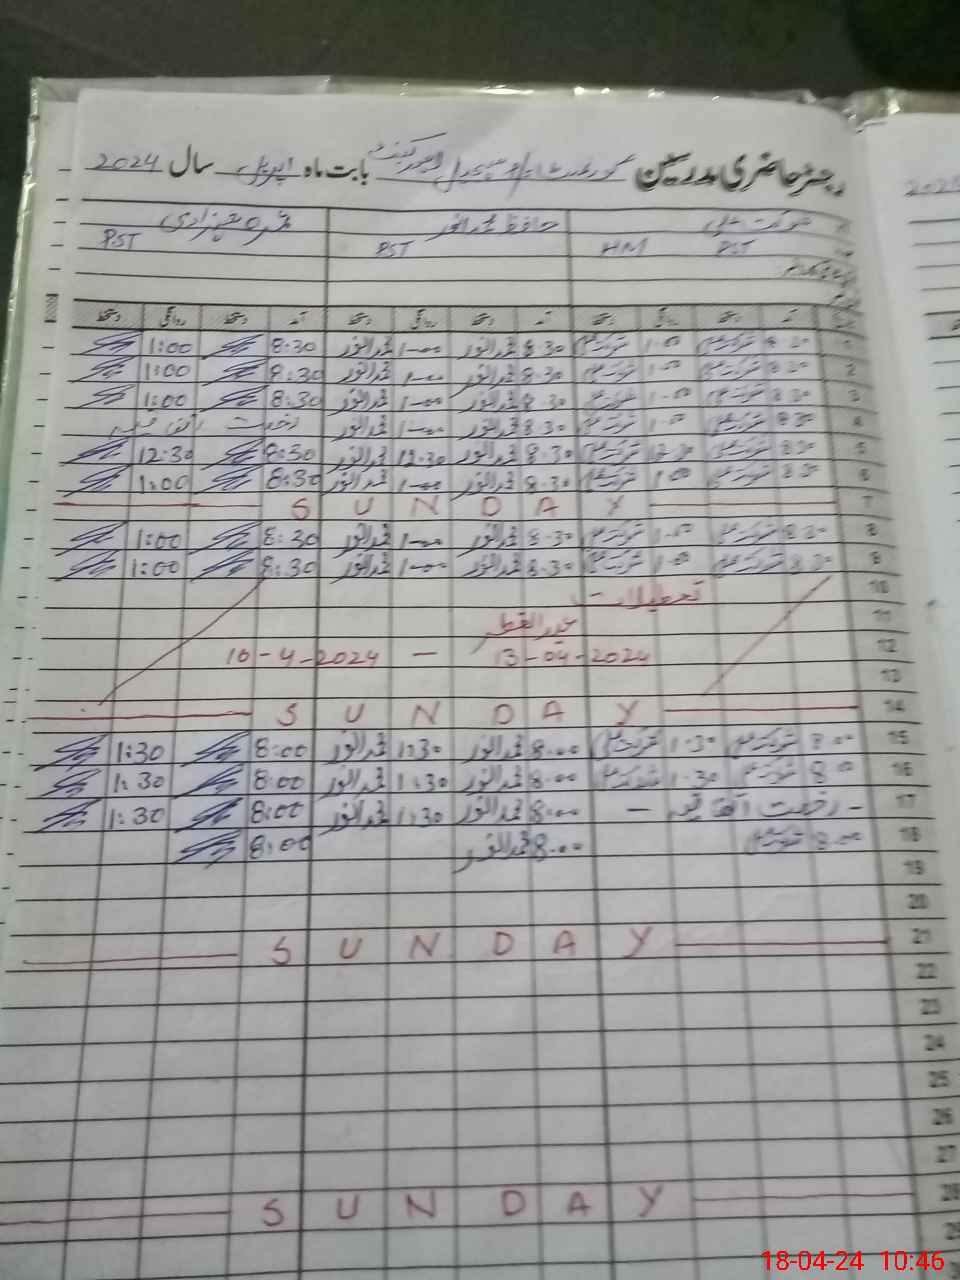 رجسٹر حاضری مدرسین بابت ماہ اپریل سال 2024
شوکت علی حافظ محمد انور
PST HM PST PST
آمد دستخط روانگی دستخط آمد دستخط روانگی دستخط آمد دستخط روانگی دستخط
1 8.30 شوکت علی 1.00 شوکت علی 8.30 محمد انور 1.00 محمد انور 8:30 1:00
2 8.30 شوکت علی 1.00 شوکت علی 8.30 محمد انور 1.00 محمد انور 8:30 1:00
3 8.30 شوکت علی 1.00 شوکت علی 8.30 محمد انور 1.00 محمد انور 8:30 1:00
4 8.30 شوکت علی 1.00 شوکت علی 8.30 محمد انور 1.00 محمد انور رخصت اتفاقیہ
5 8.30 شوکت علی 12.30 شوکت علی 8.30 محمد انور 12.30 محمد انور 8:30 12:30
6 8.30 شوکت علی 1.00 شوکت علی 8.30 محمد انور 1.00 محمد انور 8:30 1:00
7 SUNDAY
8 8.30 شوکت علی 1.00 شوکت علی 8.30 محمد انور 1.00 محمد انور 8:30 1:00
9 8.30 شوکت علی 1.00 شوکت علی 8.30 محمد انور 1.00 محمد انور 8:30 1:00
10 تعطیلات
11 عید الفطر
12 10-4-2024 — 13-04-2024
13
14 SUNDAY
15 8.00 شوکت علی 1.30 شوکت علی 8.00 محمد انور 1:30 محمد انور 8:00 1:30
16 8.00 شوکت علی 1.30 شوکت علی 8.00 محمد انور 1:30 محمد انور 8:00 1:30
17 - رخصت اتفاقیہ - 8.00 محمد انور 1:30 محمد انور 8:00 1:30
18 8.00 شوکت علی 8.00 محمد انور 8:00
19
20
21 SUNDAY
22
23
24
25
26
27
28 SUNDAY
29
18-04-24 10:46